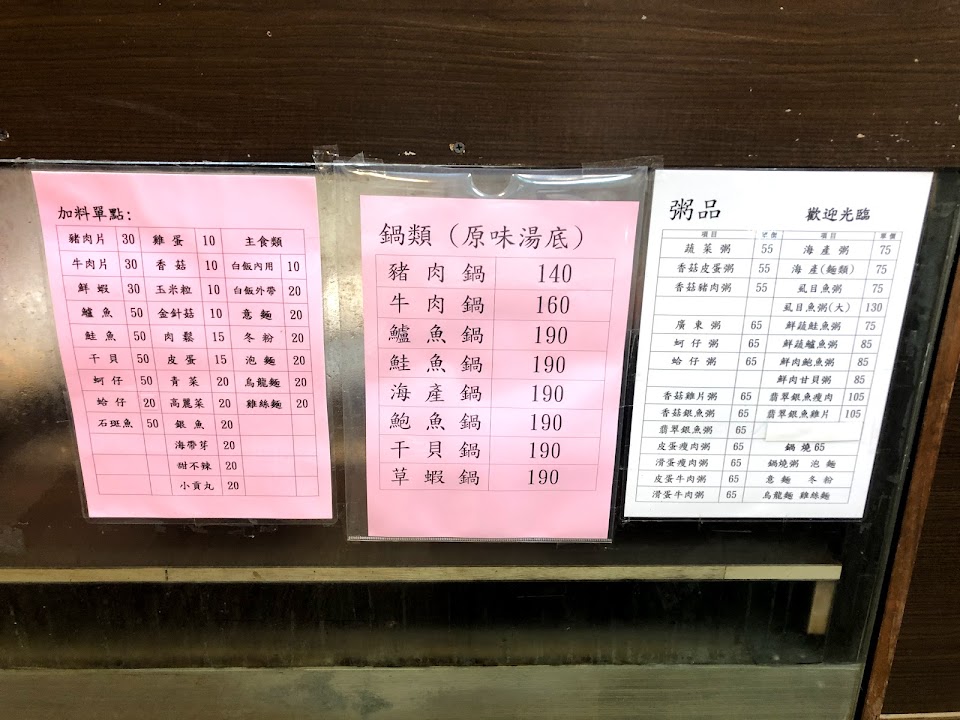 加料單點:
豬肉片 30 雞蛋 10 主食類
牛肉片 30 香菇 10 白飯內用 10
鮮蝦 30 玉米粒 10 白飯外帶 20
鱸魚 50 金針菇 10 意麵 20
鮭魚 50 肉鬆 15 冬粉 20
干貝 50 皮蛋 15 泡麵 20
蚵仔 50 青菜 20 烏龍麵 20
蛤仔 20 高麗菜 20 雞絲麵 20
石斑魚 50 銀魚 20
海帶芽 20
甜不辣 20
小貢丸 20
鍋類（原味湯底）
豬肉鍋 140
牛肉鍋 160
鱸魚鍋 190
鮭魚鍋 190
海產鍋 190
鮑魚鍋 190
干貝鍋 190
草蝦鍋 190
粥品 歡迎光臨
項目 單價 項目 單價
蔬菜粥 55 海產粥 75
香菇皮蛋粥 55 海產(麵類) 75
香菇豬肉粥 55 虱目魚粥 75
虱目魚粥(大) 130
廣東粥 65 鮮蔬鮭魚粥 75
蚵仔粥 65 鮮蔬鱸魚粥 85
蛤仔粥 65 鮮肉鮑魚粥 85
鮮肉甘貝粥 85
香菇雞片粥 65 翡翠銀魚瘦肉 105
香菇銀魚粥 65 翡翠銀魚雞片 105
翡翠銀魚粥 65
皮蛋瘦肉粥 65 鍋燒65
滑蛋瘦肉粥 65 鍋燒粥 泡麵
皮蛋牛肉粥 65 意麵 冬粉
滑蛋牛肉粥 65 烏龍麵 雞絲麵